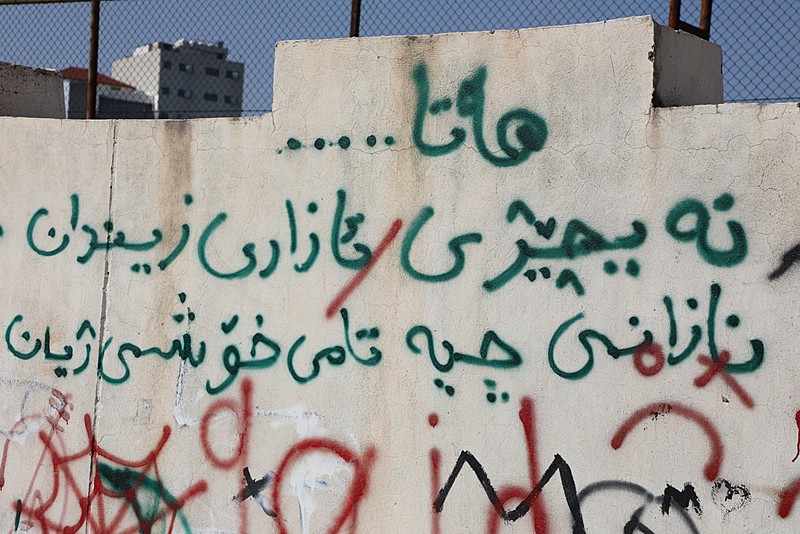 هەتا .....
نە یچێژی ئازاری زیندان
نازانی چیە تامی خۆشی ژیان